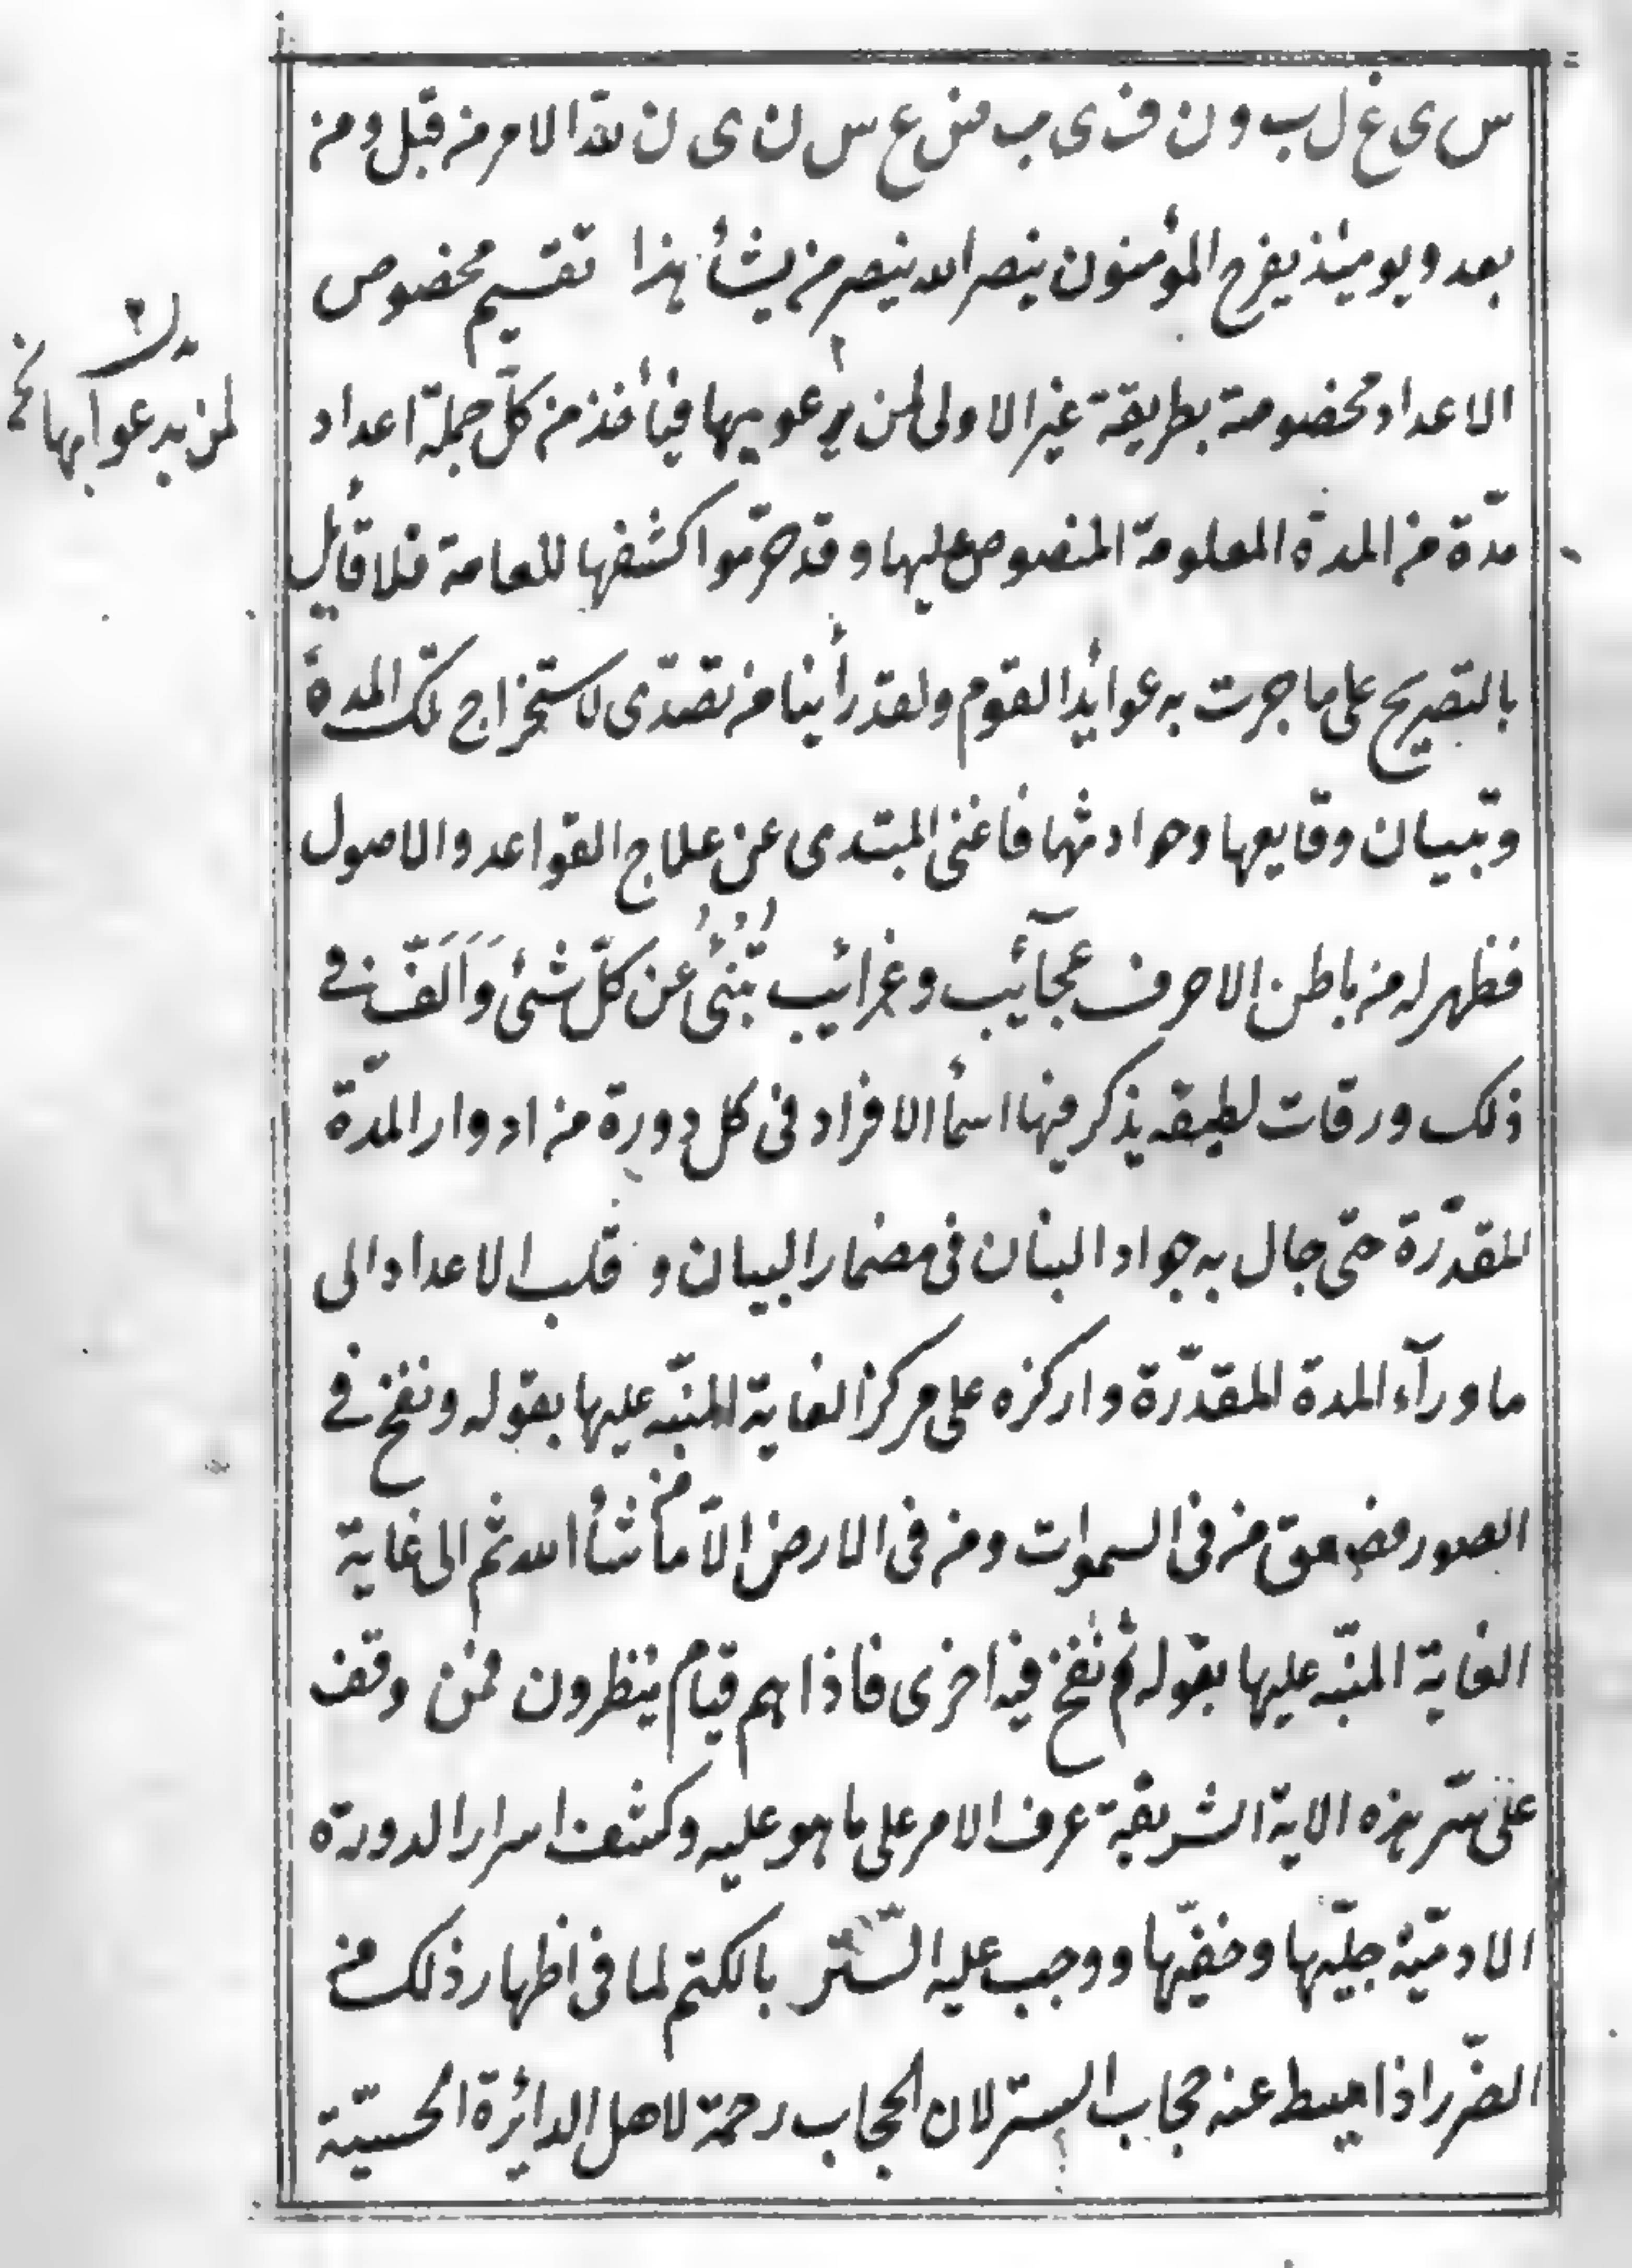 س ى غ ل ب و ن ف ى ب ض ع س ن ى ن لله الامر من قبل ومن
بعد ويومئذ يفرح المؤمنون بنصر الله ينصر من يشأ هذا تقسيم مخصوص
الاعداد مخصوصة بطريقة غير الاولى لمن يرعو بها فيأخذ من كلّ جملة اعداد
لمن يدعوا بها نخ
مدّة من المدة المعلومة المنصوص عليها وقد حرّموا كشفها للعامة فلا قائل
بالتصريح على ما جرت به عوائد القوم ولقد رأينا من تصدّى لاستخراج تلك المدة
وتبيان وقايعها وحوادثها فاغنى المبتدى عن علاج القواعد والاصول
فظهر له من باطن الاحرف عجآئب وغرائب تُنبئُ عن كلّ شئ وَاَلَّفَ فى
ذلك ورقات لطيفه يذكر فيها اسمأ الافراد فى كل دورة من ادوار المدّة
المقدّرة حتّى جال به جواد البنان فى مضمار البيان و قلب الاعداد الى
ما ورآء المدة المقدّرة واركزه على مركز الغاية المنبّه عليها بقوله ونفخ فى
الصور فصعق من فى السموات ومن فى الارض الّا من شأ الله ثم الى غاية
الغاية المنبّه عليها بقوله ثم نفخ فيه اخرى فاذا هم قيام ينظرون فمن وقف
على سّر هذه الاية الشريفة عرف الامر على ما هو عليه وكشف اسرار الدورة
الادميّة جليّها وخفيّها ووجب عليه السّتر بالكتم لما فى اظهار ذلك من
الضّرر اذا اميط عنه حجاب الستر لان الحجاب رحمة لاهل الدائرة الحسيّة